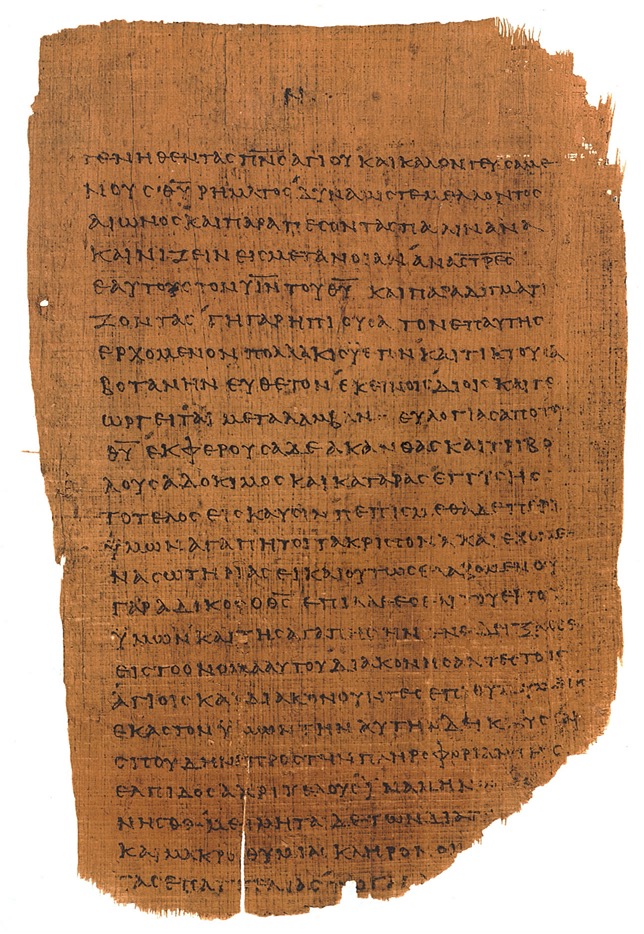 Ν
ΓΕΝΗΘΕΝΤΑϹ ΠΝ̅Ϲ̅ ΑΓΙΟΥ ΚΑΙ ΚΑΛΟΝ ΓΕΥϹΑΜΕ
ΝΟΥϹ Θ̅Υ̅ ΡΗΜΑ ΤΟϹ ΔΥΝΑΜΙϹ ΤΕ ΜΕΛΛΟΝΤΟϹ
ΑΙΩΝΟϹ ΚΑΙ ΠΑΡΑΠΕϹΟΝΤΑϹ ΠΑΛΙΝ ΑΝΑ
ΚΑΙΝΙΖΕΙΝ ΕΙϹ ΜΕΤΑΝΟΙΑΝ
ΕΑΥΤΟΙϹ ΤΟΝ Υ̅Ι̅Ν̅ ΤΟΥ Θ̅Υ̅ ΚΑΙ ΠΑΡΑΔΙΓΜΑΤΙ
ΖΟΝΤΑϹ ΓΗ ΓΑΡ Η ΠΙΟΥϹΑ ΤΟΝ ΕΠ ΑΥΤΗϹ
ΕΡΧΟΜΕΝΟΝ ΠΟΛΛΑΚΙϹ ΥΕΤΟΝ ΚΑΙ ΤΙΚΤΟΥϹΑ
ΒΟΤΑΝΗΝ ΕΥΘΕΤΟΝ ΕΚΕΙΝΟΙϹ ΔΙ ΟΙϹ ΚΑΙ ΓΕ
ΩΡΓΕΙΤΑΙ ΜΕΤΑΛΑΜΒΑΝ ΕΥΛΟΓΙΑϹ ΑΠΟ ΤΟΥ
Θ̅Υ̅ ΕΚΦΕΡΟΥϹΑ ΔΕ ΑΚΑΝΘΑϹ ΚΑΙ ΤΡΙΒΟ
ΛΟΥϹ ΑΔΟΚΙΜΟϹ ΚΑΙ ΚΑΤΑΡΑϹ ΕΓΓΥϹ ΗϹ
ΤΟ ΤΕΛΟϹ ΕΙϹ ΚΑΥϹΙΝ ΠΕΠΙϹΜΕΘΑ ΔΕ ΠΕΡΙ
ΥΜΩΝ ΑΓΑΠΗΤΟΙ ΤΑ ΚΡΙϹΤΟΝΑ ΚΑΙ ΕΧΟΜΕ
ΝΑ ϹΩΤΗΡΙΑϹ ΕΙ ΚΑΙ ΟΥΤΩϹ ΟΥ
ΓΑΡ ΑΔΙΚΟϹ Ο Θ̅Ϲ̅
ΥΜΩΝ ΚΑΙ ΤΗϹ ΑΓΑΠΗϹ ΗΝ
ΕΙϹ ΤΟ ΟΝΟΜΑ ΑΥΤΟΥ ΔΙΑΚΟΝΗϹΑΝΤΕϹ ΤΟΙϹ
ΑΓΙΟΙϹ ΚΑΙ ΔΙΑΚΟΝΟΥΝΤΕϹ
ΕΚΑϹΤΟΝ ΥΜΩΝ ΤΗΝ ΑΥΤΗΝ
ϹΠΟΥΔΗΝ ΠΡΟϹ ΤΗΝ ΠΛΗΡΟΦΟΡΙΑΝ ΤΗϹ
ΕΛΠΙΔΟϹ ΑΧΡΙ ΤΕΛΟΥϹ ΙΝΑ ΜΗ Ν
ΜΕΙΜΗΤΑΙ ΔΕ ΤΩΝ ΔΙΑ
ΚΑΙ ΜΑΚΡΟΘΥΜΙΑϹ ΚΛΗΡΟΝΟ
ΤΑϹ ΕΠΑΓΓΕΛΙΑϹ